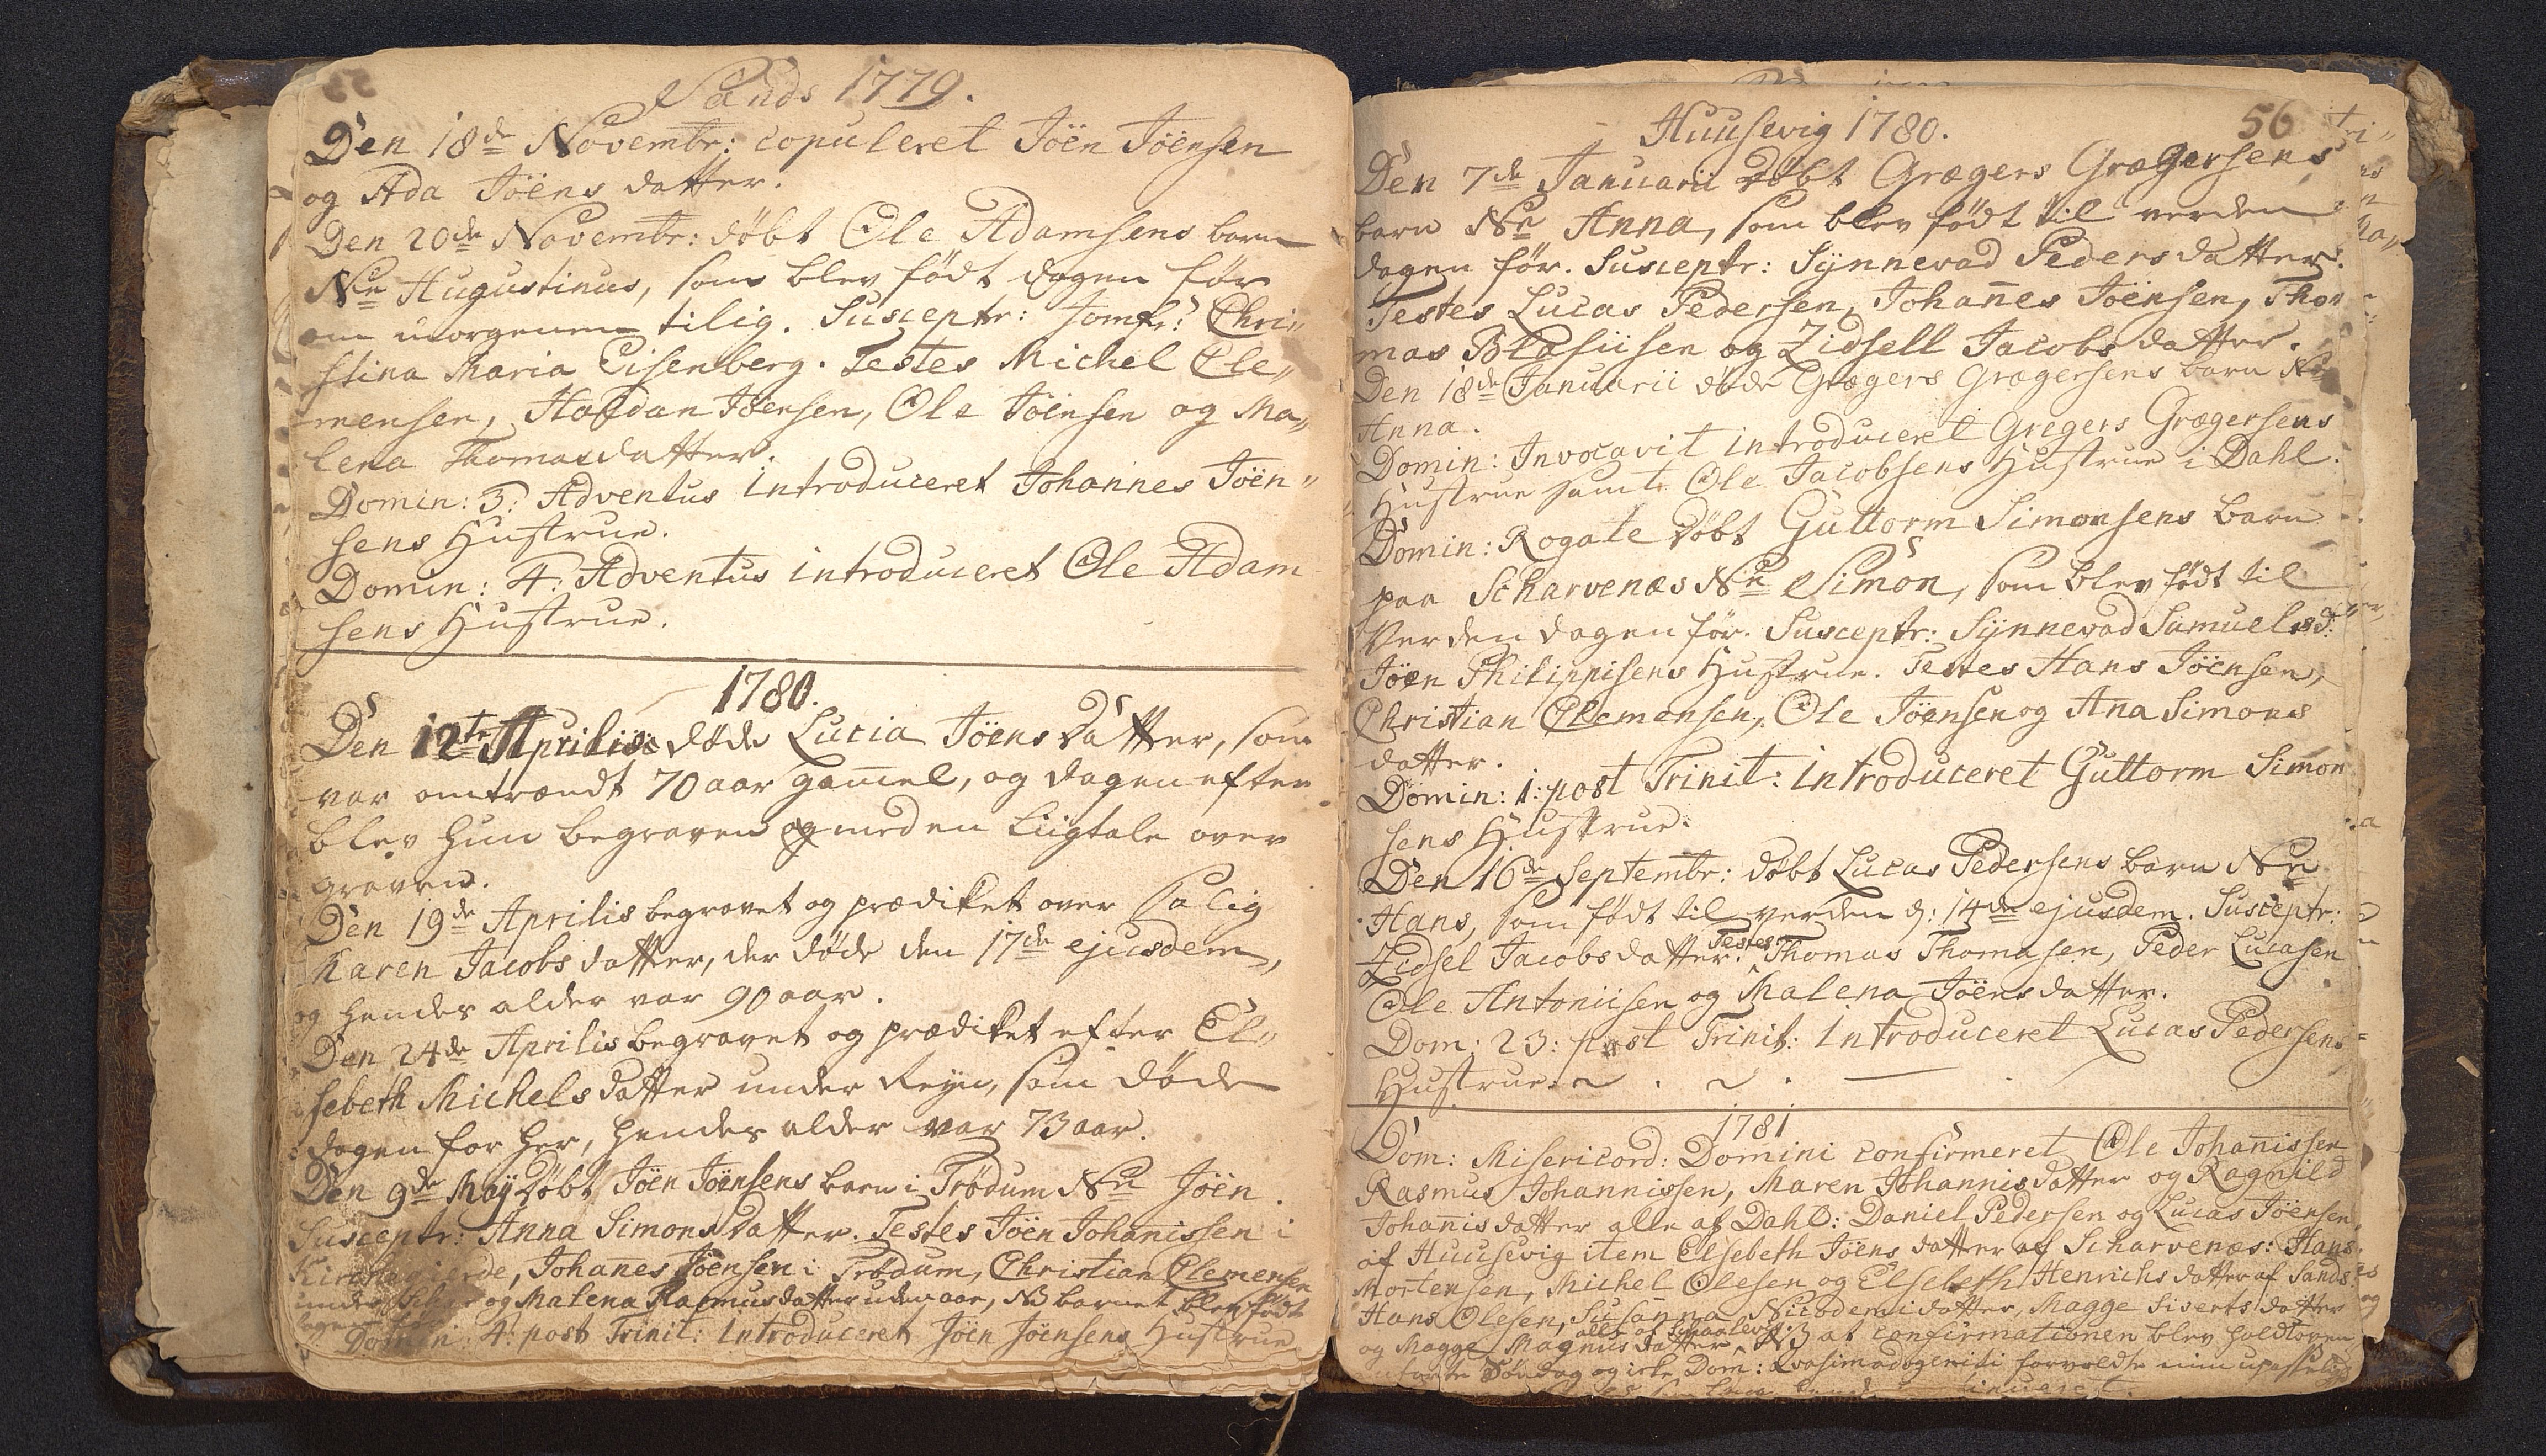 Sands 1779.
Den 18de Novembr: copuleret Jöen Jöensen
og Ada Jöens datter.
Den 20de Novembr: döbt Ole Adamsens barn
Nn Augustinus, som blev födt dagen för
om morgenen tilig. Susceptr: Jomfr: Chri„
stina Maria Eisenberg. Testes Michel Cle„
mensen, Haldan Jöensen, Ole Jöensen og Ma„
lena Thomasdatter.
Domin: 3: Adventus introduceret Johannes Jöen„
sens Hustrue.
Domin: 4: Adventus introduceret Ole Adam
sens Hustrue.
1780.
Den 12te Aprilis döde Lucia Jöens Datter, som
var omtrendt 70 aar gam̄el, og dagen efter
blev hun begraven og med en Liigtale over
graven.
Den 19de Aprilis begravet og prædiket over salig
Karen Jacobs datter, der döde den 17de ejusdem,
og hendes alder var 90 aar.
Den 24de Aprilis begravet og prædiket efter El„
sebeth Michels datter under Reyn, som döde
dagen for her, hendes alder var 73 aar.
Den 9de Maij Döbt Jöen Jöensens barn i Trödum Nn Jöen.
Susceptr: Anna Simons datter. Testes Jöen Johan̄issen i
Johan̄es Jöensen i Trödum, Christian Clemensen
under og Malena Rasmusdatter uden aae, NB barnet blev födt
dagen för
Domin: 4: post Trinit: introduceret Jöen Jöensens Hustrue
56
Huusevig 1780.
Den 7de Januarii döbt Grægers Grægersens
barn Nn Anna, som blev födt til verden
dagen för. Susceptr: Synnevad Peders datter.
Testes Lucas Pedersen, Johan̄es Jöensen, Tho
mas Blasiisen og Zidsell Jacobs datter.
Den 18de Januarii döde Grægers Grægersens barn Nn
Anna.
Domin: Invocavit introduceret Gregers Grægersens
Hustrue samt Ole Jacobsens Hustrue i Dahl.
Domin: Rogate döbt Guttorm Simonsens barn
paa Scharvenæs Nn Simon, som blev födt til
Verden dagen för. Susceptr: Synnevad Samuelsd:
Jöen Philippisens Hustrue. Testes Hans Jöensen,
Christian Clemensen, Ole Jöensen og Ana Simons
datter.
Domin: 1: post Trinit: introduceret Guttorm Simon
sens Hustrue.
Den 16de Septembr: döbt Lucas Pedersens barn Nn
Hans, som födt til verden d: 14de ejusdem. Susceptr:
Zidsel Jacobsdatter. Testes Thomas Thomasen, Peder Lucasen
Ole Antoniisen og Malena Jöens datter.
Dom: 23: post Trinit: Introduceret Lucas Pedersens
Hustrue.
1781
Dom: Misericord: Domini confirmeret Ole Johan̄issen
Rasmus Johannissen, Maren Johannisdatter og Ragnild
Johan̄isdatter alle af Dahl: Daniel Pedersen og Lucas Jöensen
af Huusevig item Elsebeth Jöens datter af Scharvenæs: Hans
Mortensen, Michel Olesen og Elsebeth Henrichs datter af Sands:
Hans Olesen, Susanna Nicodemi datter, Magge Siverts datter
og Magge Magnus datter alle af NB at confirmationen blev holdt
Söndag og icke Dom: Qvasimodogeniti forvoldte min